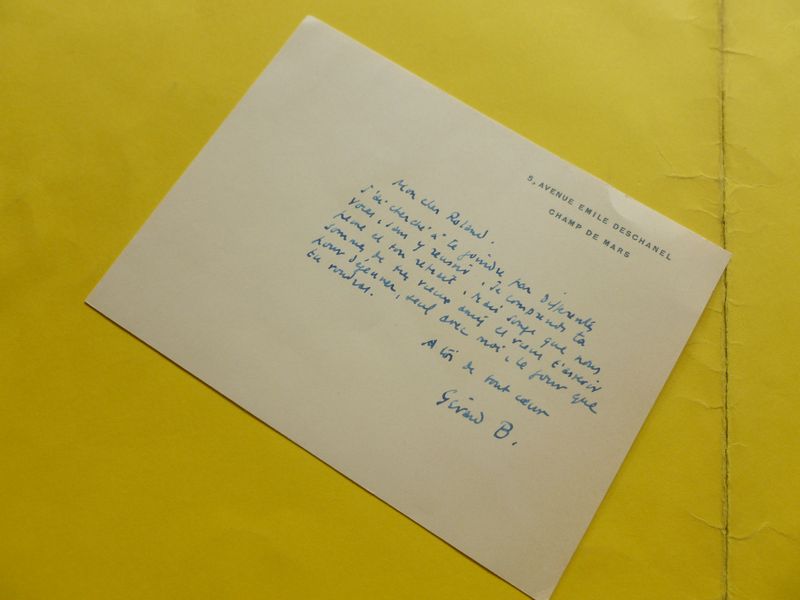 5, AVENUE EMILE DESCHANEL
CHAMP DE MARS
Mon cher Roland,
J'ai cherché à te joindre par différentes
voies, sans y réussir. Je comprends ta
peine et ton retrait. Mais songe que nous
sommes de tes vieux amis et viens t'asseoir
pour déjeuner, seul avec moi, le jour que
tu voudras.
A toi de tout cœur
Gérard B.